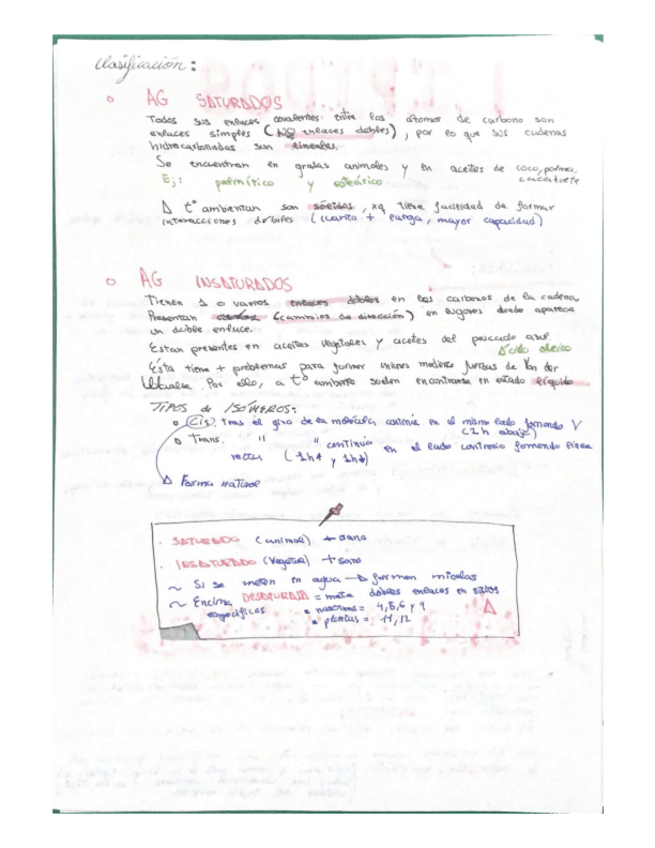 Clasificación:
o AG SATURADOS
Todos sus enlaces covalentes entre los átomos de carbono son
enlaces simples (NO enlaces dobles), por lo que sus cadenas
hidrocarbonadas son lineales.
Se encuentran en grasas animales y en aceites de coco, palma,
cacahuete
Ej: palmítico y esteárico
Δ tº ambiental son sólidos, xq tiene facilidad de formar
interacciones débiles (cuanto + larga, mayor capacidad)
o AG INSATURADOS
Tienen 1 o varios enlaces dobles en los carbonos de la cadena,
Presentan codos (cambios de dirección) en lugares donde aparece
un doble enlace.
Están presentes en aceites vegetales y aceites del pescado azul.
Ácido oleico
Ésta tiene + problemas para formar uniones mediante fuerzas de Van der
Waals. Por ello, a tº ambiente suelen encontrarse en estado líquido
TIPOS de ISÓMEROS:
o Cis. tras el giro de la molécula continúa en el mismo lado formando V
(2h abajo)
o Trans. " " continúa en el lado contrario formando línea
recta (1h↑ y 1h↓)
Δ Forma natural
. SATURADO (animal) - sano
. INSATURADO (Vegetal) + sano
~ Si se meten en agua → forman micelas
~ Encima DESATURASA = mete dobles enlaces en sitios
específicos
• nosotros = 4,5,6 y 9
• plantas = 11,12